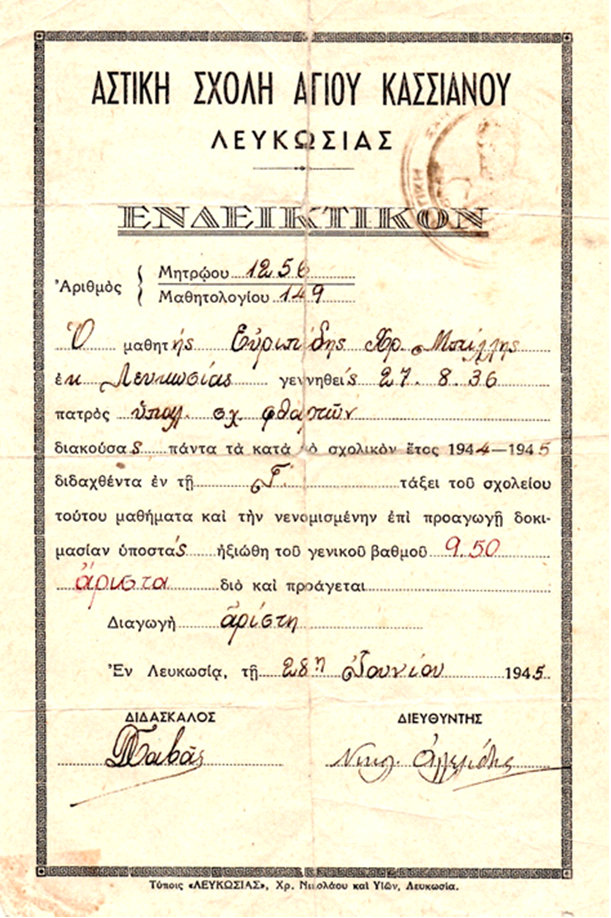 ΑΣΤΙΚΗ ΣΧΟΛΗ ΑΓΙΟΥ ΚΑΣΣΙΑΝΟΥ
ΛΕΥΚΩΣΙΑΣ
ΕΝΔΕΙΚΤΙΚΟΝ
Ἀριθμὸς { Μητρῴου 1256
Μαθητολογίου 149
Ὁ μαθητής Εὐριπίδης Χρ.
ἐκ Λευκωσίας γεννηθείς 27.8.36
πατρὸς ὑπαλ. φθαρτῶν
διακούσας πάντα τὰ κατὰ τὸ σχολικὸν ἔτος 1944—1945
διδαχθέντα ἐν τῇ Γ΄ τάξει τοῦ σχολείου
τούτου μαθήματα καὶ τὴν νενομισμένην ἐπὶ προαγωγῇ δοκι-
μασίαν ὑποστάς ἠξιώθη τοῦ γενικοῦ βαθμοῦ 9.50
ἄριστα διὸ καὶ προάγεται
Διαγωγὴ ἀρίστη
Ἐν Λευκωσίᾳ, τῇ 28η Ἰουνίου 1945
ΔΙΔΑΣΚΑΛΟΣ ΔΙΕΥΘΥΝΤΗΣ
Νικολ.
Τύποις «ΛΕΥΚΩΣΙΑΣ», Χρ. Νικολάου καὶ Υἱῶν, Λευκωσία.